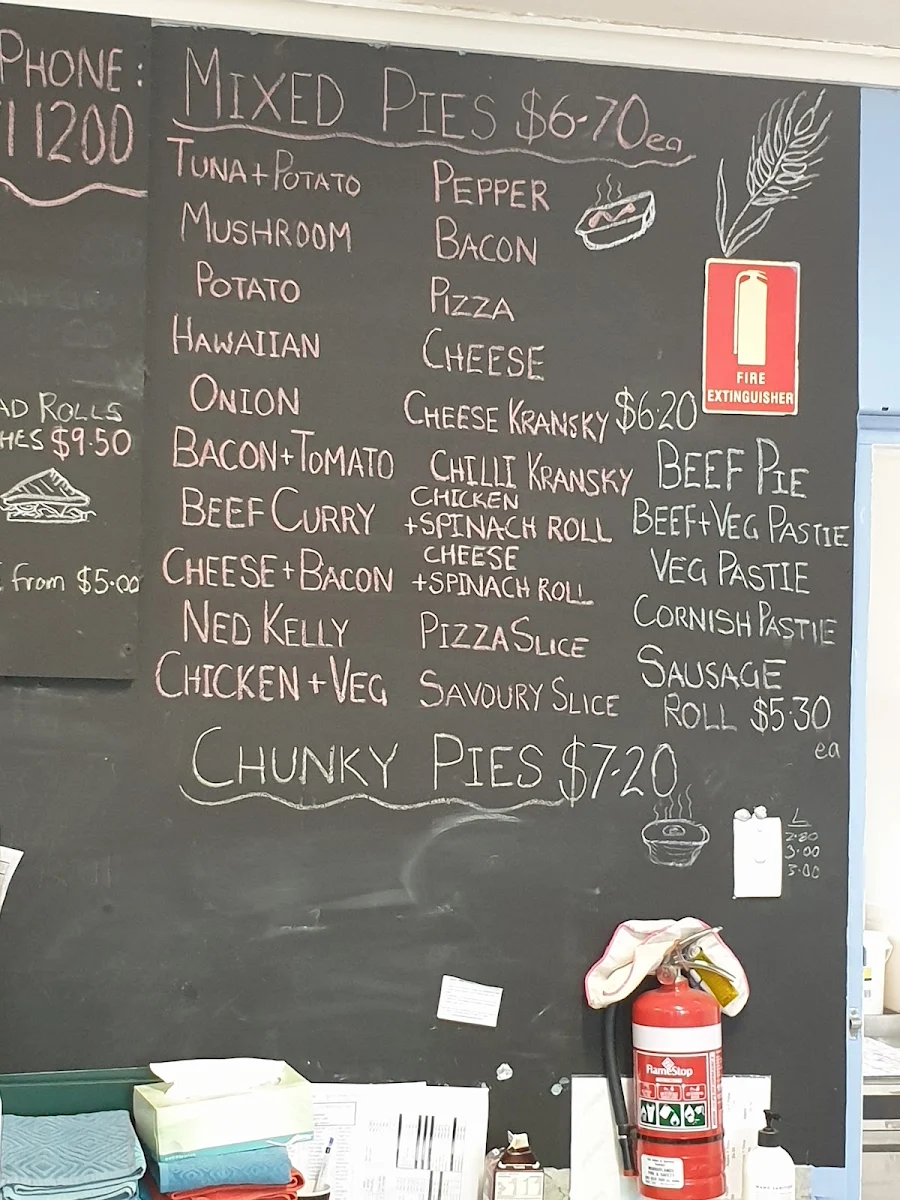 PHONE:
11200
AD ROLLS
HES $9.50
from $5.00
MIXED PIES $6.70 ea
TUNA+POTATO
MUSHROOM
POTATO
HAWAIIAN
ONION
BACON+TOMATO
BEEF CURRY
CHEESE+BACON
NED KELLY
CHICKEN+VEG
PEPPER
BACON
PIZZA
CHEESE
CHEESE KRANSKY $6.20
CHILLI KRANSKY
CHICKEN
+SPINACH ROLL
CHEESE
+SPINACH ROLL
PIZZA SLICE
SAVOURY SLICE
BEEF PIE
BEEF+VEG PASTIE
VEG PASTIE
CORNISH PASTIE
SAUSAGE
ROLL $5.30
ea
CHUNKY PIES $7.20
FIRE
EXTINGUISHER
L
2.80
3.00
3.00
FLAMESTOP